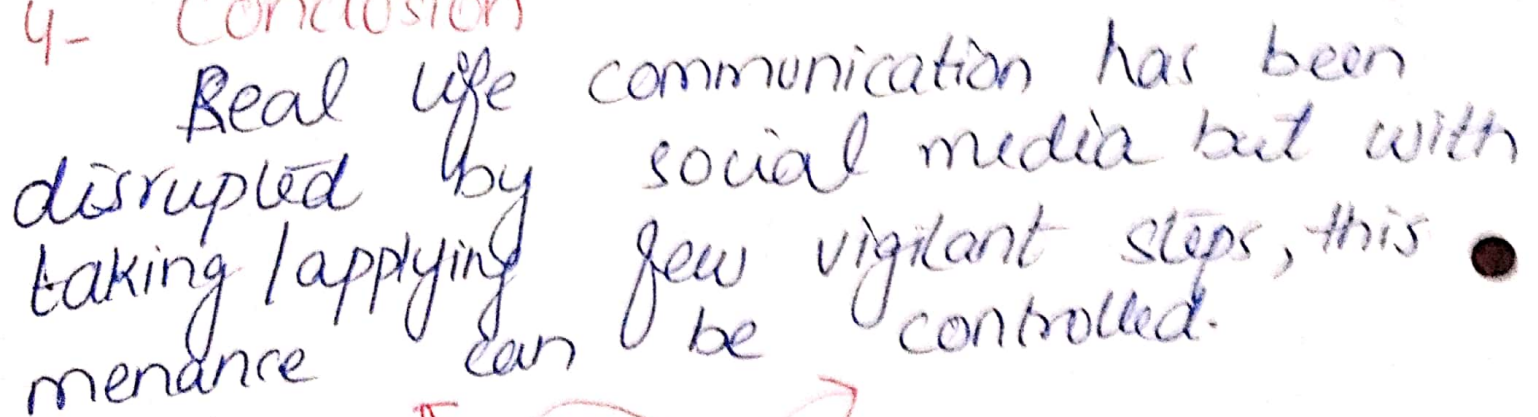 4- Conclusion
Real life communication has been
disrupted by social media but with
taking / applying few vigilant steps, this
menance can be controlled.